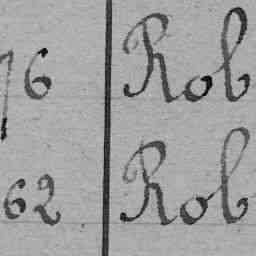 76 Rob
62 Rob